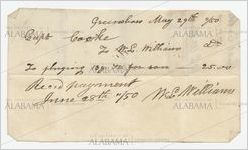 Greensboro May 29th 1850
Capt Cocke
To W. E. Williams Dr
To for son 25.00
Recd payment
June 28th 1850 W. E. Williams
ALABAMA